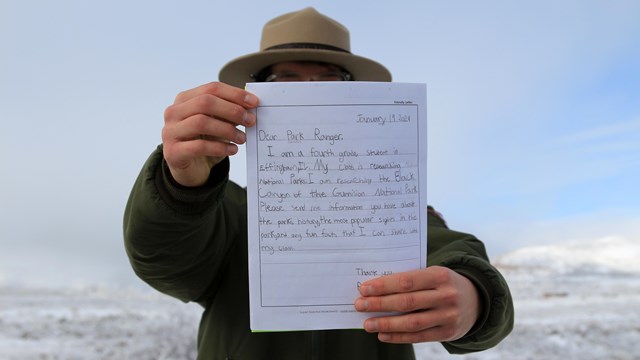 January 19,
Dear Park Ranger,
I am a fourth grade student
Effingham, IL. My class is researching
National Parks. I am researching the Black
Canyon of the Gunnison National Park
Please send me information you have about
the parks history, the most popular sights in the
park, and any fun facts that I can share with
my class.
Thank you